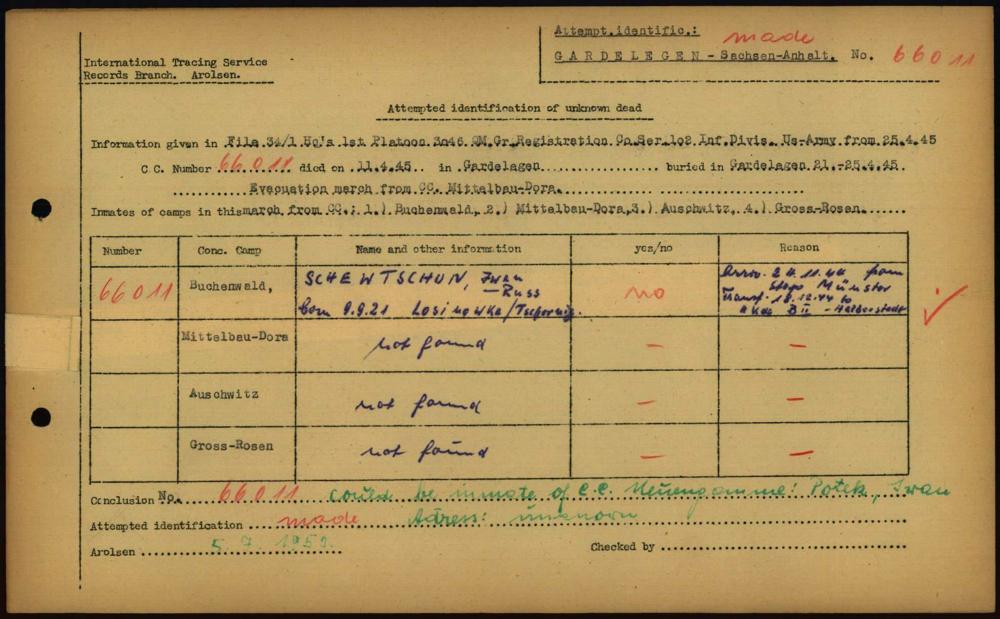 Attempt.identific.: made
GARDELEGEN - Sachsen-Anhalt. No. 66011
International Tracing Service
Records Branch. Arolsen.
Attempted identification of unknown dead
Information given in File 34/1 Hq's 1st Platoon 3046 QM.Gr.Registration Co.Ser.1o2 Inf.Divis. Us-Army from 25.4.45
C.C. Number 66011 died on 11.4.45 in Gardelagen buried in Gardelagen 21.-25.4.45.
Evacuation march from CC. Mittelbau-Dora.
Inmates of camps in this march from CC.: 1.) Buchenwald, 2.) Mittelbau-Dora, 3.) Auschwitz, 4.) Gross-Rosen.
Number Conc. Camp Name and other information yes/no Reason
66011 Buchenwald, SCHEWTSCHUN, Iwan no Arriv. 24.11.44 from
Russ Stapo Münster
born 9.9.21 Losinowka/Tschernig. Transf. 18.12.44 to
Kdo BII - Halberstadt
Mittelbau-Dora not found — —
Auschwitz not found — —
Gross-Rosen not found — —
Conclusion No. 66011 could be inmate of C.C. Neuengamme: Potek, Iwan
Attempted identification made Adress: unknown
Arolsen 5. 7. 1950. Checked by